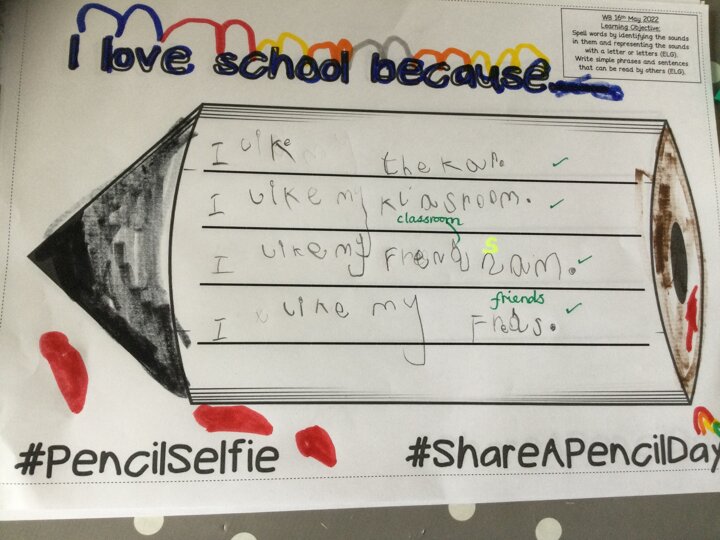 WB 16th May 2022
Learning Objective:
Spell words by identifying the sounds
in them and representing the sounds
with a letter or letters (ELG).
Write simple phrases and sentences
that can be read by others (ELG).
I love school because
I like the kar.
I like my klasroom.
classroom
I like my Frend sam.
S
friends
I like my Freds.
#PencilSelfie
#ShareAPencilDay